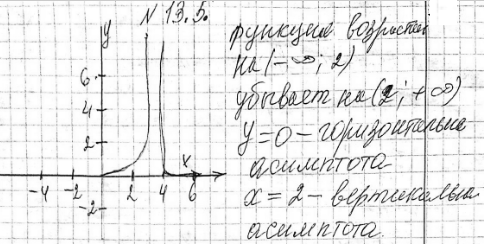 N 13.5.
y
6
4
2
x
-4 -2 2 4 6
-2
функция возрастает
на (-∞; 2)
убывает на (2; +∞)
y=0 - горизонтальна
асимптота
x = 2 - вертикальна
асимптота.